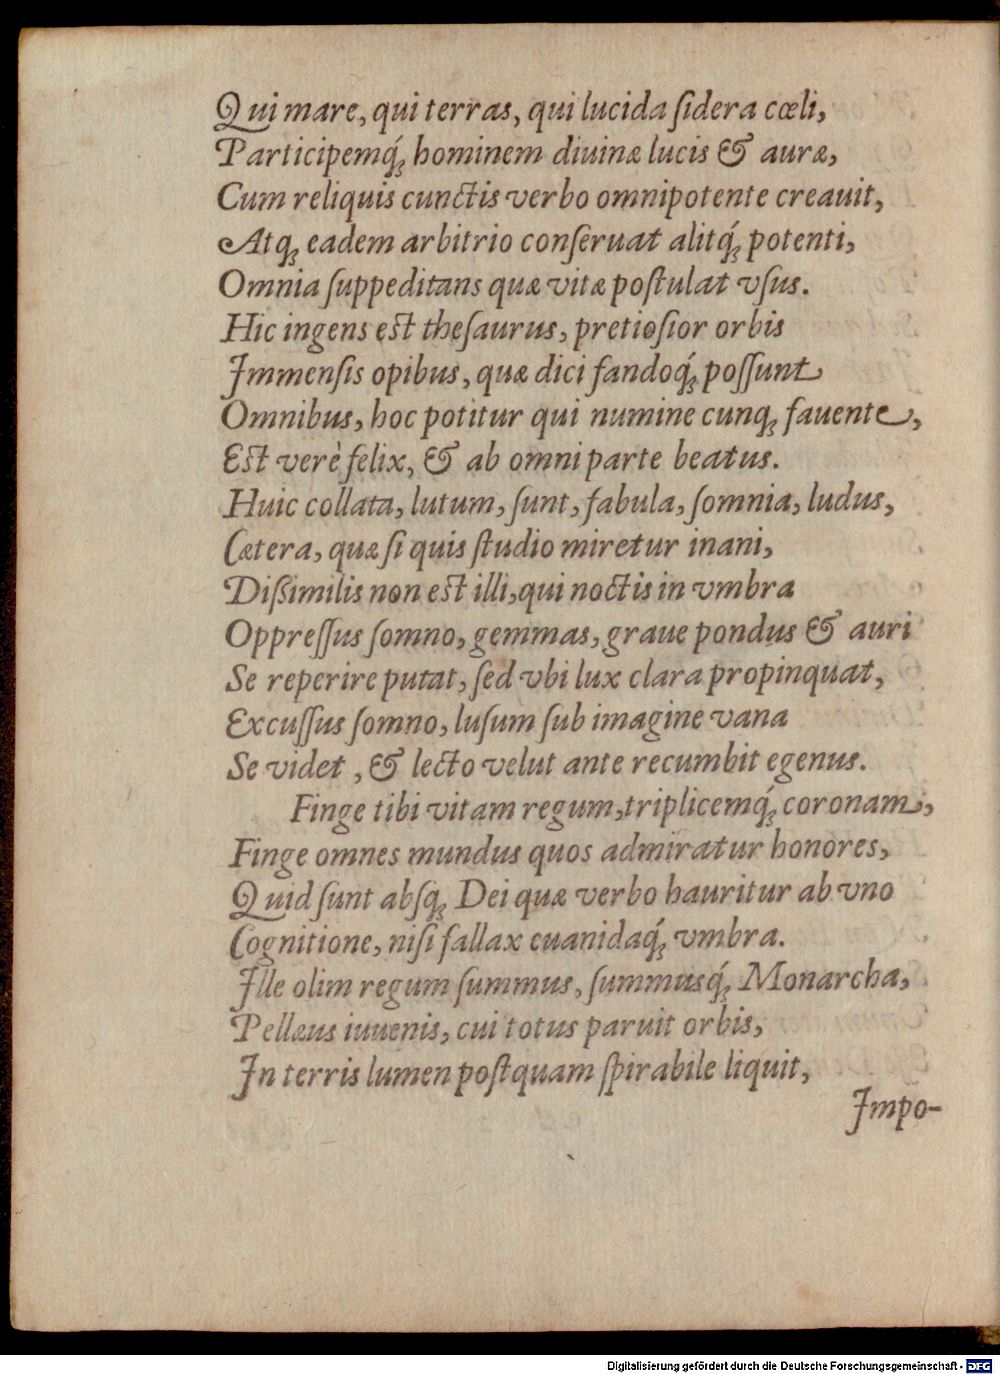 Qui mare, qui terras, qui lucida ſidera cœli,
Participemq́; hominem diuinæ lucis & auræ,
Cum reliquis cunctis verbo omnipotente creauit,
Atq; eadem arbitrio conſeruat alitq́; potenti,
Omnia ſuppeditans quæ vitæ poſtulat vſus.
Hic ingens eſt theſaurus, pretioſior orbis
Immenſis opibus, quæ dici fandoq́; poſſunt
Omnibus, hoc potitur qui numine cunq; fauente,
Eſt verè felix, & ab omni parte beatus.
Huic collata, lutum, ſunt, fabula, ſomnia, ludus,
Cætera, quæ ſi quis ſtudio miretur inani,
Diſsimilis non eſt illi, qui noctis in vmbra
Oppreſſus ſomno, gemmas, graue pondus & auri
Se reperire putat, ſed vbi lux clara propinquat,
Excuſſus ſomno, luſum ſub imagine vana
Se videt, & lecto velut ante recumbit egenus.
Finge tibi vitam regum, triplicemq́; coronam,
Finge omnes mundus quos admiratur honores,
Quid ſunt abſq; Dei quæ verbo hauritur ab vno
Cognitione, niſi fallax euanidaq́; vmbra.
Ille olim regum ſummus, ſummusq́; Monarcha,
Pellæus iuuenis, cui totus paruit orbis,
In terris lumen poſtquam ſpirabile liquit,
Impo-
Digitalisierung gefördert durch die Deutsche Forschungsgemeinschaft - DFG